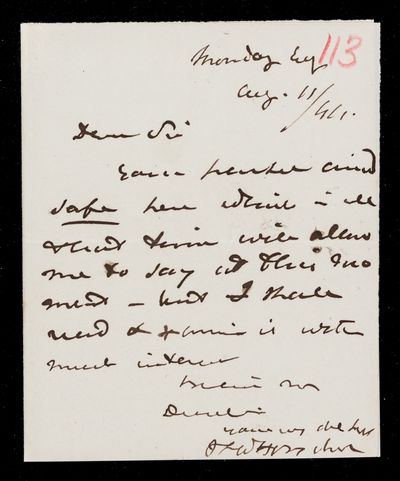 Monday Evg 113
Aug. 11/44.
Dear Sir
Your packet arrived
safe here which is all
that time will allow
me to say at this mo
ment - but I shall
read & examine it with
much interest
Believe me
Dear Sir
yours very
JFWHerschel